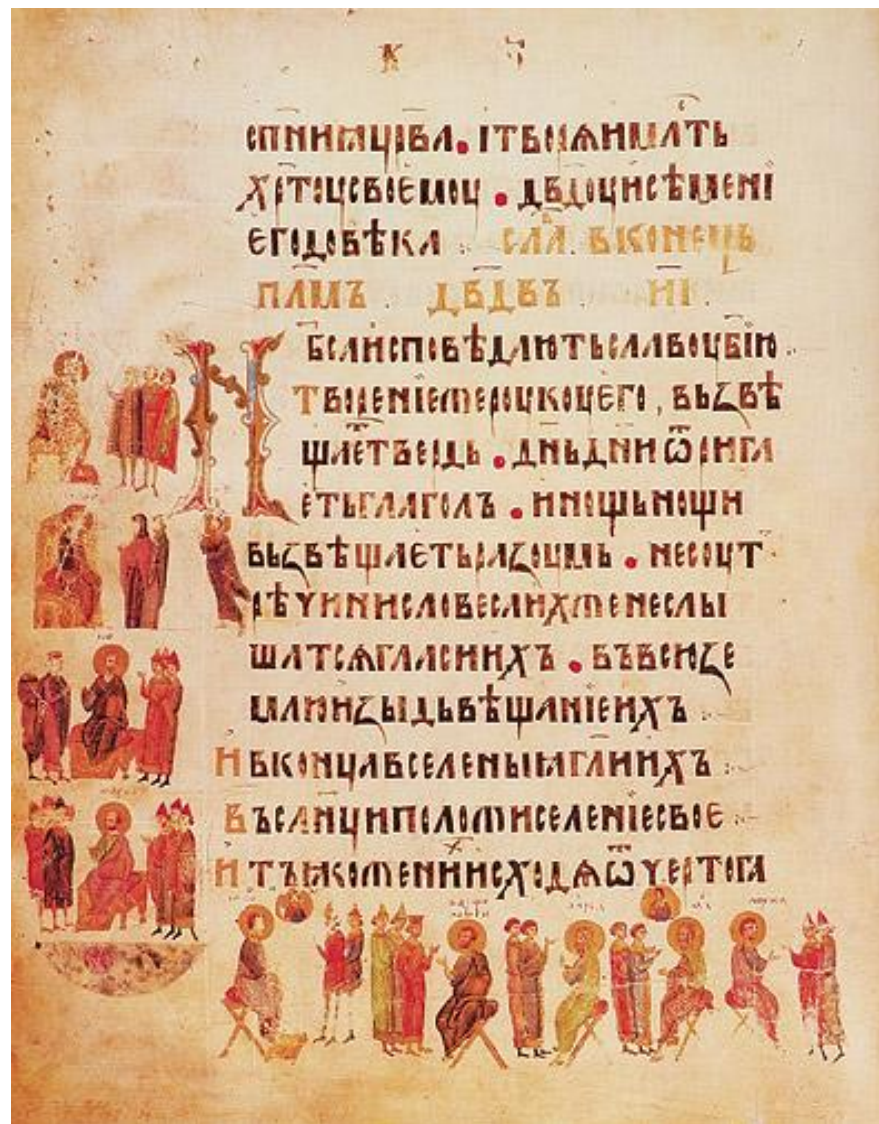 К Ѕ
сп҃ниꙗцр҃ва. ітворѧимл҃ть
хрт҃оусвоемоу. дв҃доуисѣмені
егодовѣка : сла҃. вконець
пл҃мъ дв҃двъ н҃і
Нб҃саисповѣдаютьславоубж҃ію
твореніежероукоуего, възвѣ
щаетътвердь. дн҃ьдн҃иѿрига
етьглаголъ. инощьнощи
възвѣщаетьразоумь. несоут
рѣчинисловесаихженеслы
шатсѧгласиихъ. въвсюзе
млюизыдевѣщаніеихъ :
ивконцавселеныꙗгл҃иихъ :
въсл҃нциположиселеніесвое :
итъꙗкоженихисходѧѿчертога